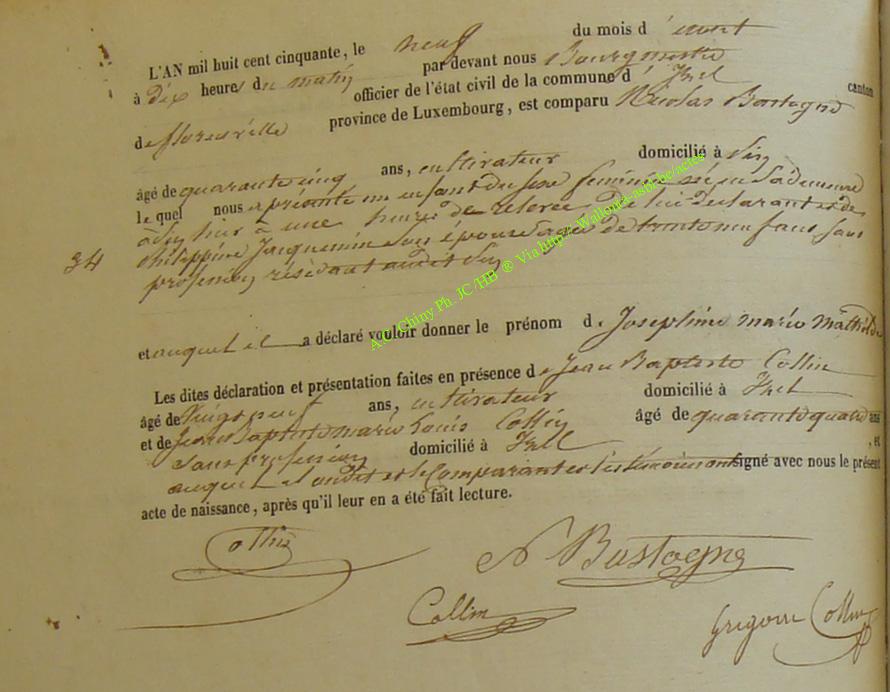 L'AN mil huit cent cinquante, le neuf du mois d' aout
à dix heures du matin par devant nous Bourgmestre
officier de l'état civil de la commune d' Izel canton
de florenville province de Luxembourg, est comparu Nicolas Bastogne
âgé de quarante cinq ans, cultivateur domicilié à
le quel nous a présenté un enfant du sexe féminin né en sa demeure
à hier à une heure de relevée de lui déclarant et de
34 philippine Jacquemin son épouse agée de trente neuf ans sans
profession résidant audit
et auquel il a déclaré vouloir donner le prénom de Joséphine marie Mathilde
Les dites déclaration et présentation faites en présence de Jean Baptiste Collin
âgé de vingt neuf ans, cultivateur domicilié à Izel
et de Jean Baptiste marie Louis Collin âgé de quarante quatre ans
sans profession domicilié à Izel , et
le Comparant et les témoins ont signé avec nous le présent
acte de naissance, après qu'il leur en a été fait lecture.
Collin
N Bastogne
Collin
Grégoire Collin
A.C. Chiny Ph. JC /HB ® Via https-Wallonia-asbl-be/actes